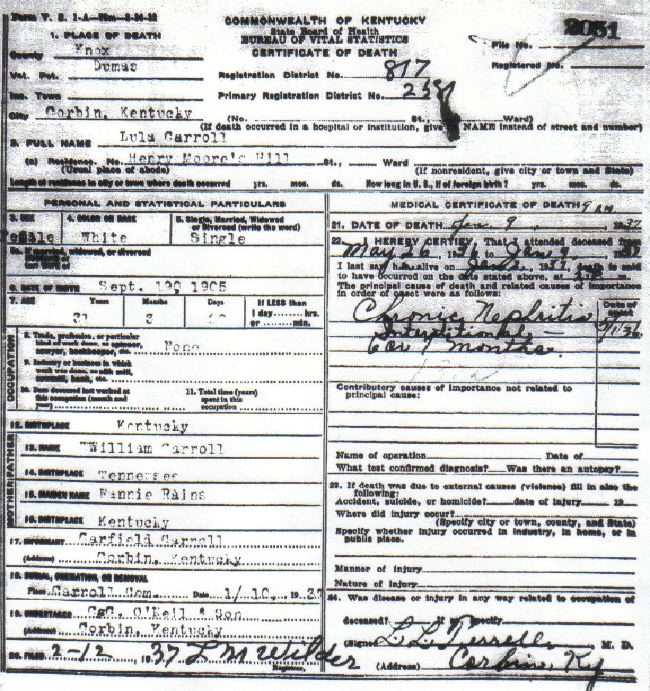 Form V. S. 1-A
COMMONWEALTH OF KENTUCKY
State Board of Health
BUREAU OF VITAL STATISTICS
CERTIFICATE OF DEATH
2051
File No.
Registered No.
1. PLACE OF DEATH
County Knox
Vot. Pct. Dumas
Inc. Town
City Corbin, Kentucky
Registration District No. 817
Primary Registration District No.
(No. St., Ward)
(If death occurred in a hospital or institution, give NAME instead of street and number)
2. FULL NAME Lula Carroll
(a) Residence. No. Henry Moore's Hill St., Ward
(Usual place of abode) (If nonresident, give city or town and State)
Length of residence in city or town where death occurred yrs. mos. ds. How long in U. S., if of foreign birth? yrs. mos. ds.
PERSONAL AND STATISTICAL PARTICULARS
3. SEX 4. COLOR OR RACE 5. Single, Married, Widowed or Divorced (write the word)
Female White Single
5a. If married, widowed, or divorced
6. DATE OF BIRTH Sept. 19, 1905
7. AGE Years Months Days If LESS than
31 3 1 day hrs.
or min.
OCCUPATION
8. Trade, profession, or particular
kind of work done, as spinner,
sawyer, bookkeeper, etc. None
9. Industry or business in which
work was done, as silk mill,
sawmill, bank, etc.
10. Date deceased last worked at
this occupation (month and
year)
11. Total time (years)
spent in this
occupation
12. BIRTHPLACE Kentucky
FATHER
13. NAME William Carroll
14. BIRTHPLACE Tennessee
MOTHER
15. MAIDEN NAME Fannie Rains
16. BIRTHPLACE Kentucky
17. INFORMANT Garfield Carroll
(Address) Corbin, Kentucky
18. BURIAL, CREMATION, OR REMOVAL
Place Carroll Cem. Date 1/10, 1937
19. UNDERTAKER C&C. O'Neil & Son
(Address) Corbin, Kentucky
20. FILED 2-12, 1937 L M Wilder
Registrar.
MEDICAL CERTIFICATE OF DEATH 9 AM
21. DATE OF DEATH Jan. 9, 1937
22. I HEREBY CERTIFY, That I attended deceased from
May 26, 1936 Jan 9, 1937
I last saw her alive on
to have occurred on the date stated above, at m.
The principal cause of death and related causes of importance
in order of onset were as follows:
Date of
onset
Chronic Nephritis
Interstitional
6 or 7 months.
Contributory causes of importance not related to
principal cause:
Name of operation Date of
What test confirmed diagnosis? Was there an autopsy?
23. If death was due to external causes (violence) fill in also the
following:
Accident, suicide, or homicide? date of injury 19
Where did injury occur?
(Specify city or town, county, and State)
Specify whether injury occurred in industry, in home, or in
public place.
Manner of injury
Nature of injury
24. Was disease or injury in any way related to occupation of
deceased? If so, specify
(Signed) L. L. Terrell M. D.
(Address) Corbin, Ky